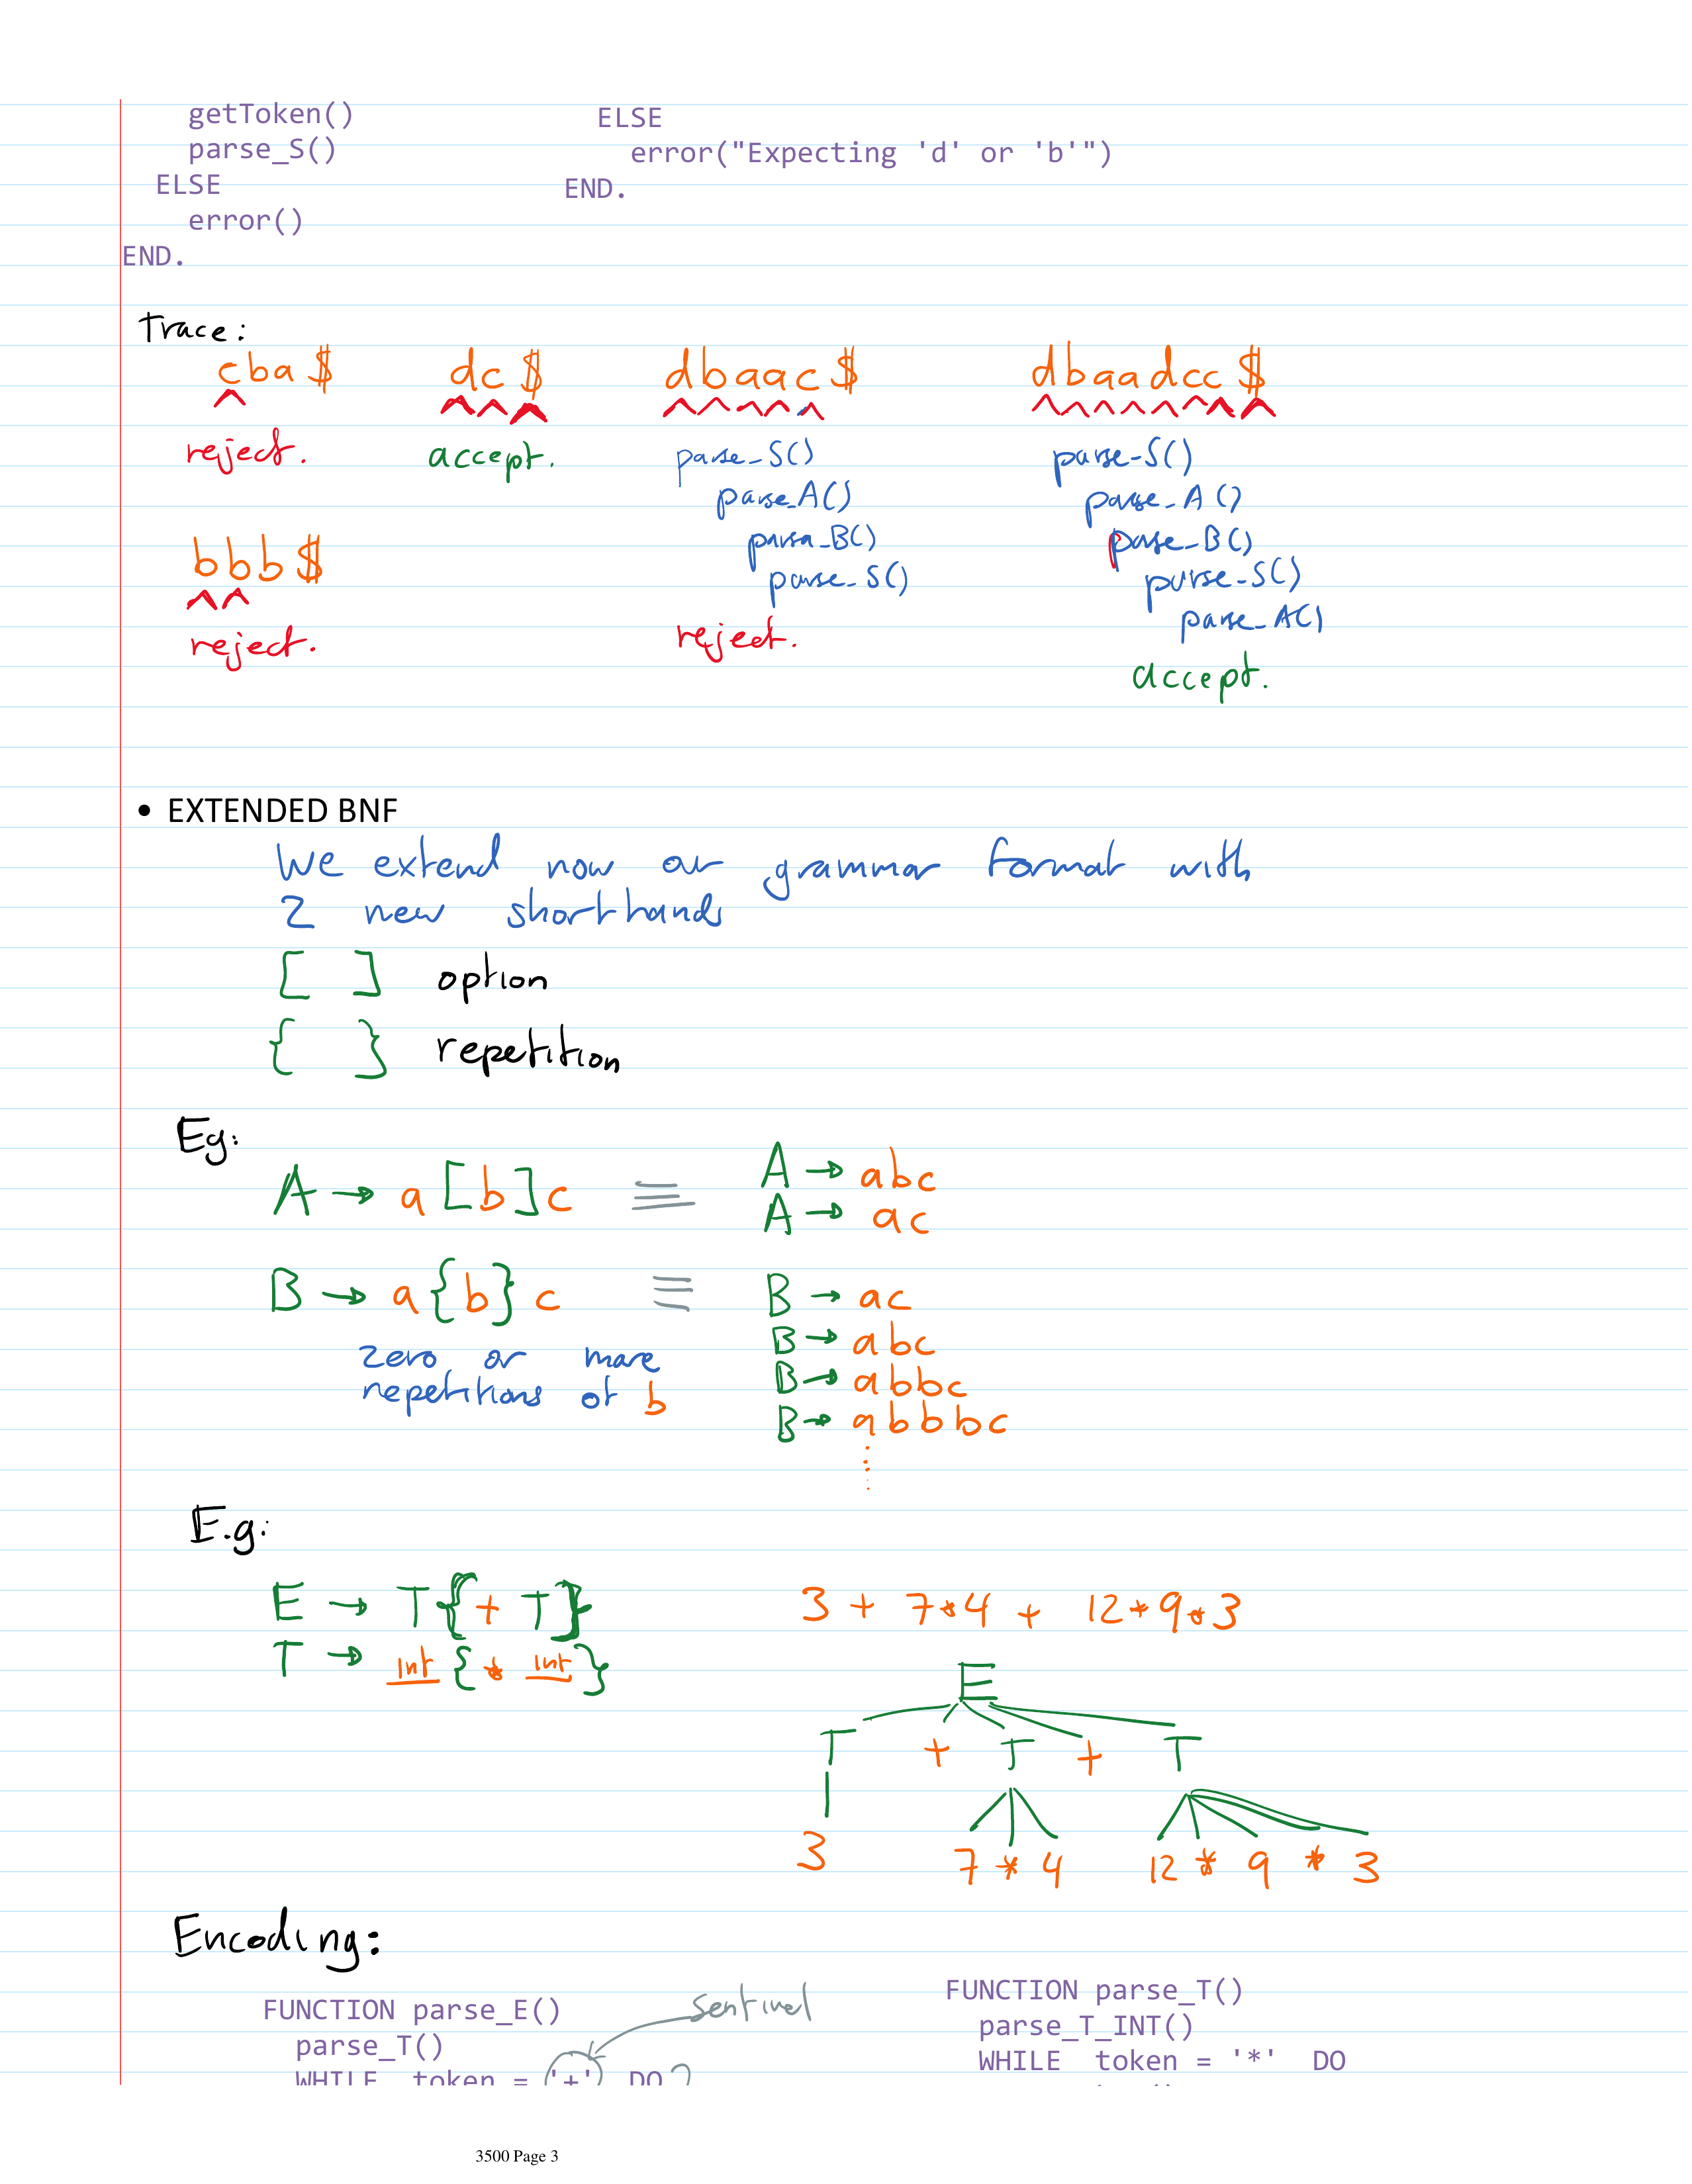 getToken()
parse_S()
ELSE
error()
END.
ELSE
error("Expecting 'd' or 'b'")
END.
Trace:
cba$
reject.
dc$
accept.
dbaac$
parse_S()
parse_A()
parsa_B()
parse_S()
reject.
dbaadcc$
parse_S()
parse_A()
parse_B()
parse_S()
parse_A()
accept.
bbb$
reject.
• EXTENDED BNF
We extend now our grammar format with
2 new shorthands
[ ] option
{ } repetition
Eg:
A → a[b]c ≡ A → abc
A → ac
B → a{b}c ≡ B → ac
zero or more
repetitions of b
B → abc
B → abbc
B → abbbc
⋮
E.g:
E → T{+ T}
T → int{* int}
3 + 7*4 + 12*9*3
E
T + T + T
3 7 * 4 12 * 9 * 3
Encoding:
FUNCTION parse_E()
parse_T()
WHILE token = '+' DO
sentinel
FUNCTION parse_T()
parse_T_INT()
WHILE token = '*' DO
3500 Page 3